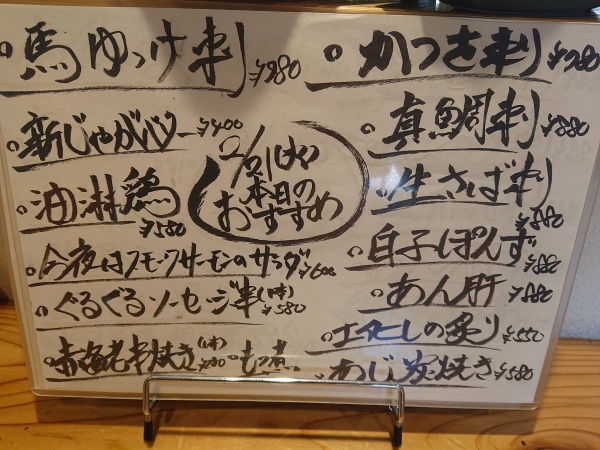 馬ゆっけ刺 ¥980
新じゃがバター ¥400
油淋鶏 ¥580
今夜はスモークサーモンのサラダ ¥600
ぐるぐるソーセージ串(1本) ¥580
赤海老串焼き(1本)
もつ煮
2/21(火)
本日の
おすすめ
かつお刺 ¥780
真鯛刺 ¥880
生さば刺 ¥880
白子ぽんず ¥880
あん肝 ¥880
炙り ¥550
あじ炭焼き ¥580